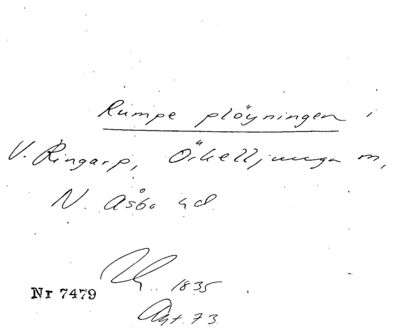 Rumpe plöyningen i
V. Ringarp, Örkelljunga m,
N. Åsbo hd.
1835
Nr 7479
Akt. 73